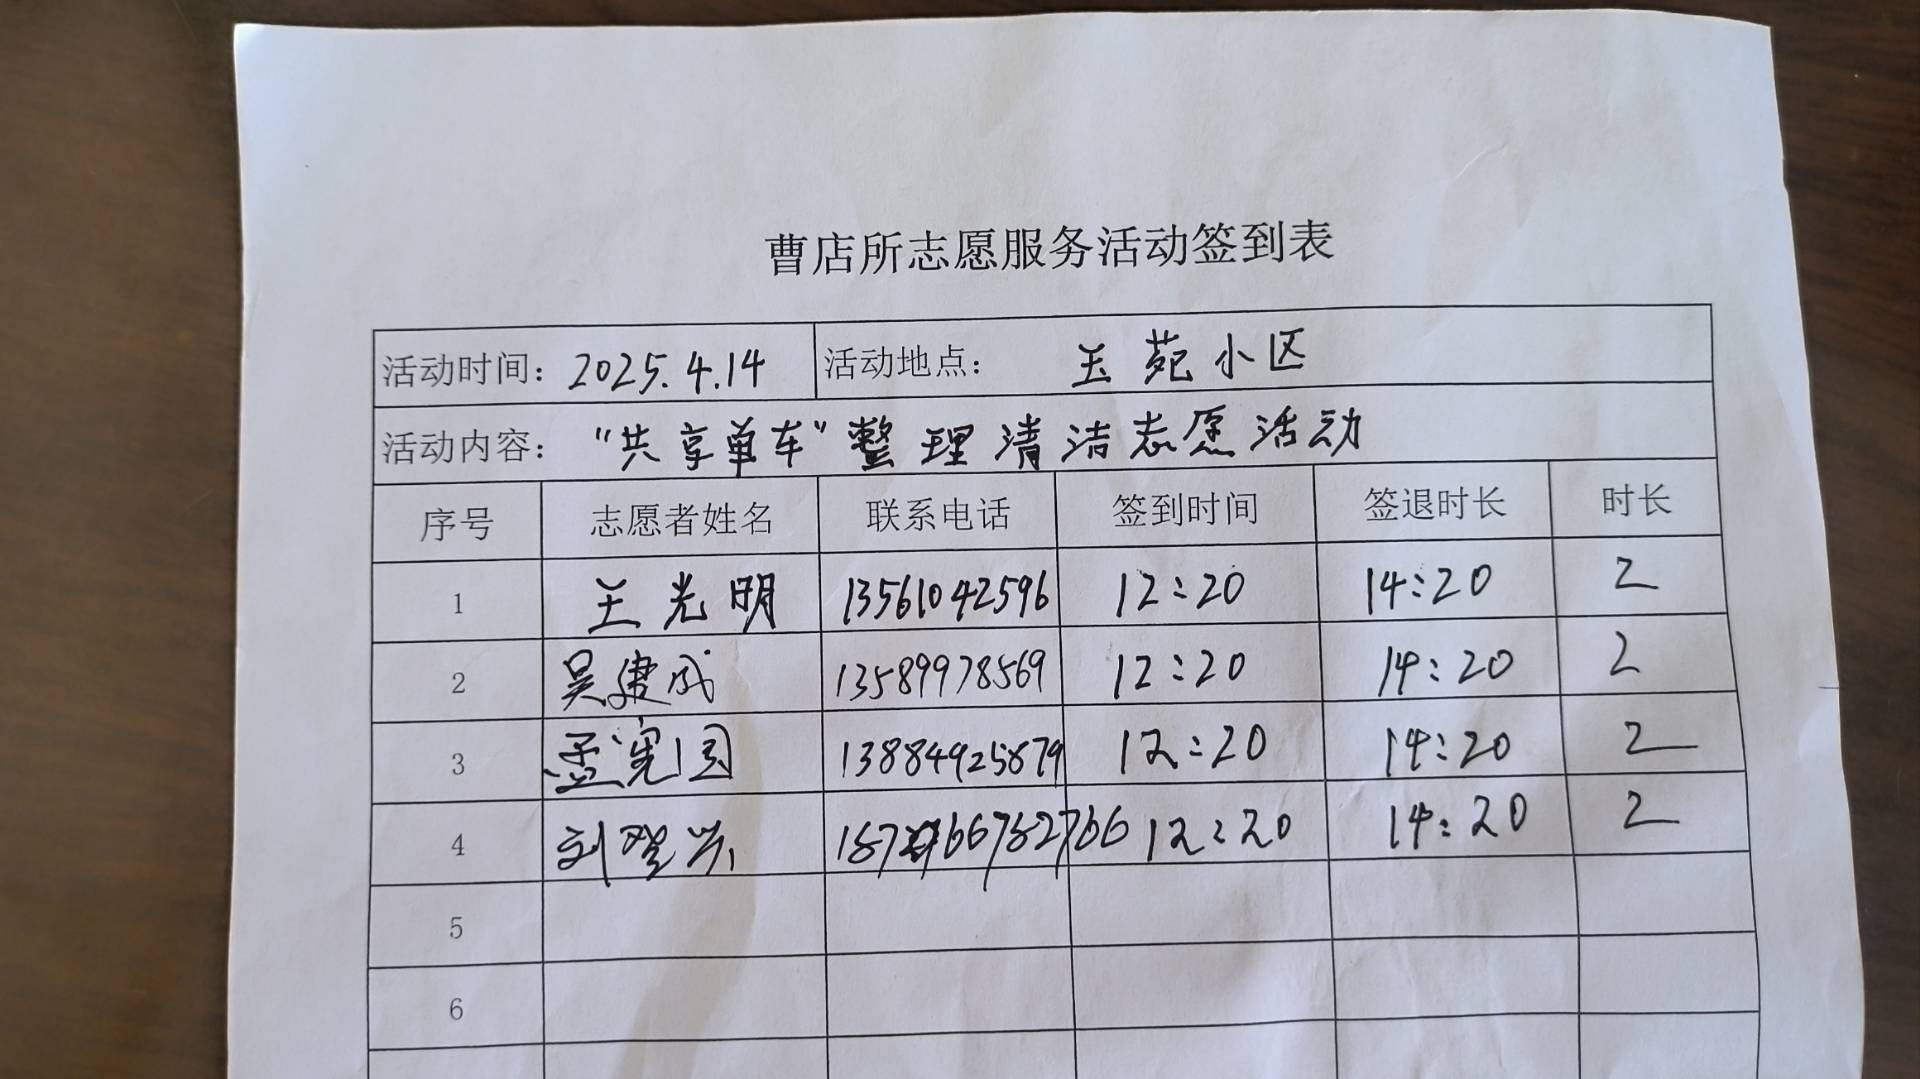 曹店所志愿服务活动签到表
活动时间：2025.4.14 活动地点： 玉苑小区
活动内容：“共享单车”整理清洁志愿活动
序号 志愿者姓名 联系电话 签到时间 签退时长 时长
1 王光明 13561042596 12:20 14:20 2
2 吴建成 13589978569 12:20 14:20 2
3 孟宪国 13884925879 12:20 14:20 2
4 刘 12:20 14:20 2
5
6